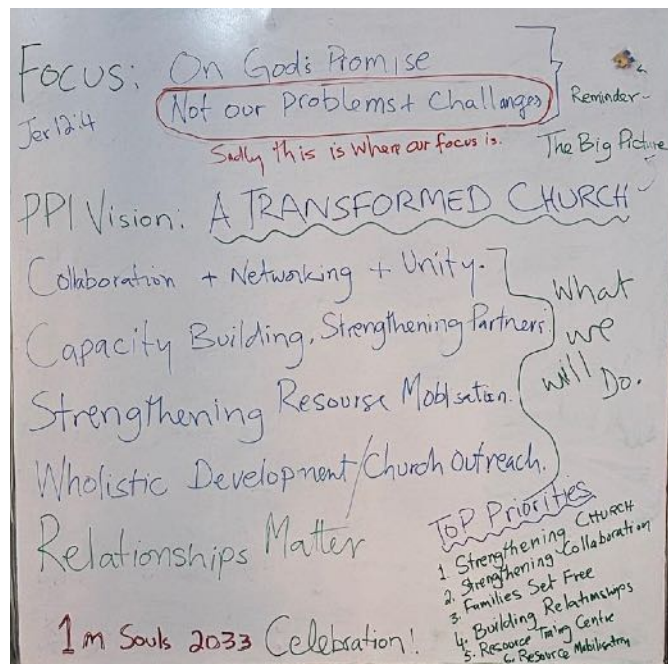 FOCUS: On God's Promise
Jer 12:4
Not our Problems + Challanges
Sadly this is where our focus is.
Reminder -
The Big Picture
PPI Vision: A TRANSFORMED CHURCH
Collaboration + Networking + Unity.
Capacity Building, Strengthening Partners.
Strengthening Resourse Moblsation.
Wholistic Development/Church Outreach.
What
we
will Do.
Relationships Matter
1m Souls 2033 Celebration!
ToP Priorities
1. Strengthening CHURCH
2. Strengthening Collaboration
3. Families Set Free
4. Building Relationships
5. Resource Traing Centre
6. Resource Mobilisation